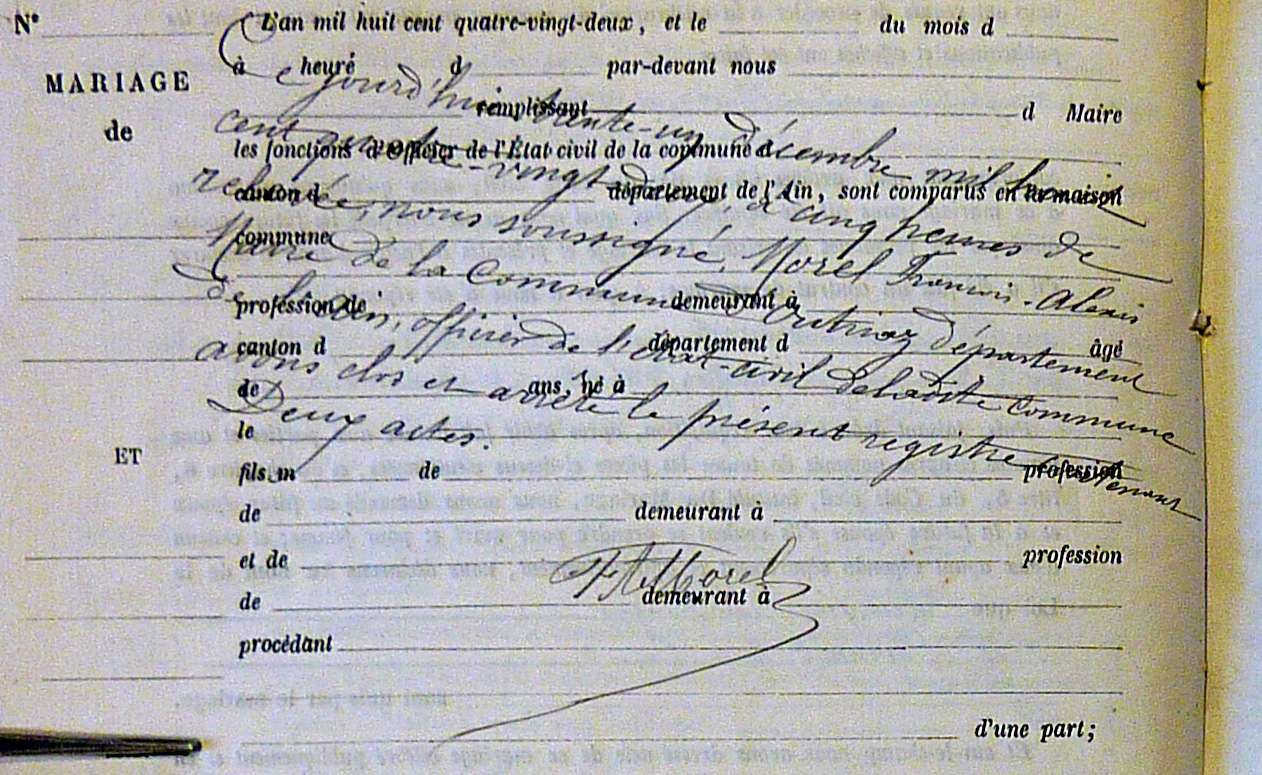 N°
MARIAGE
de
ET
L'an mil huit cent quatre-vingt-deux, et le du mois d
à heure d par-devant nous
remplissant d Maire
les fonctions d'Officier de l'État civil de la commune d
canton d département de l'Ain, sont comparus en la maison
commune
profession de demeurant à
canton d département d âgé
de ans, né à
le
fils m de profession
de demeurant à
et de profession
de demeurant à
procédant
d'une part;
Cejourd'hui trente-un Décembre mil huit
cent quatre-vingt deux, à cinq heures de
relevée, nous soussigné, Morel François-Alexis
Maire de la Commune d'Outriaz département
de l'Ain, officier de l'état-civil de ladite Commune
avons clos et arrêté le présent registre contenant
Deux actes.
F A Morel